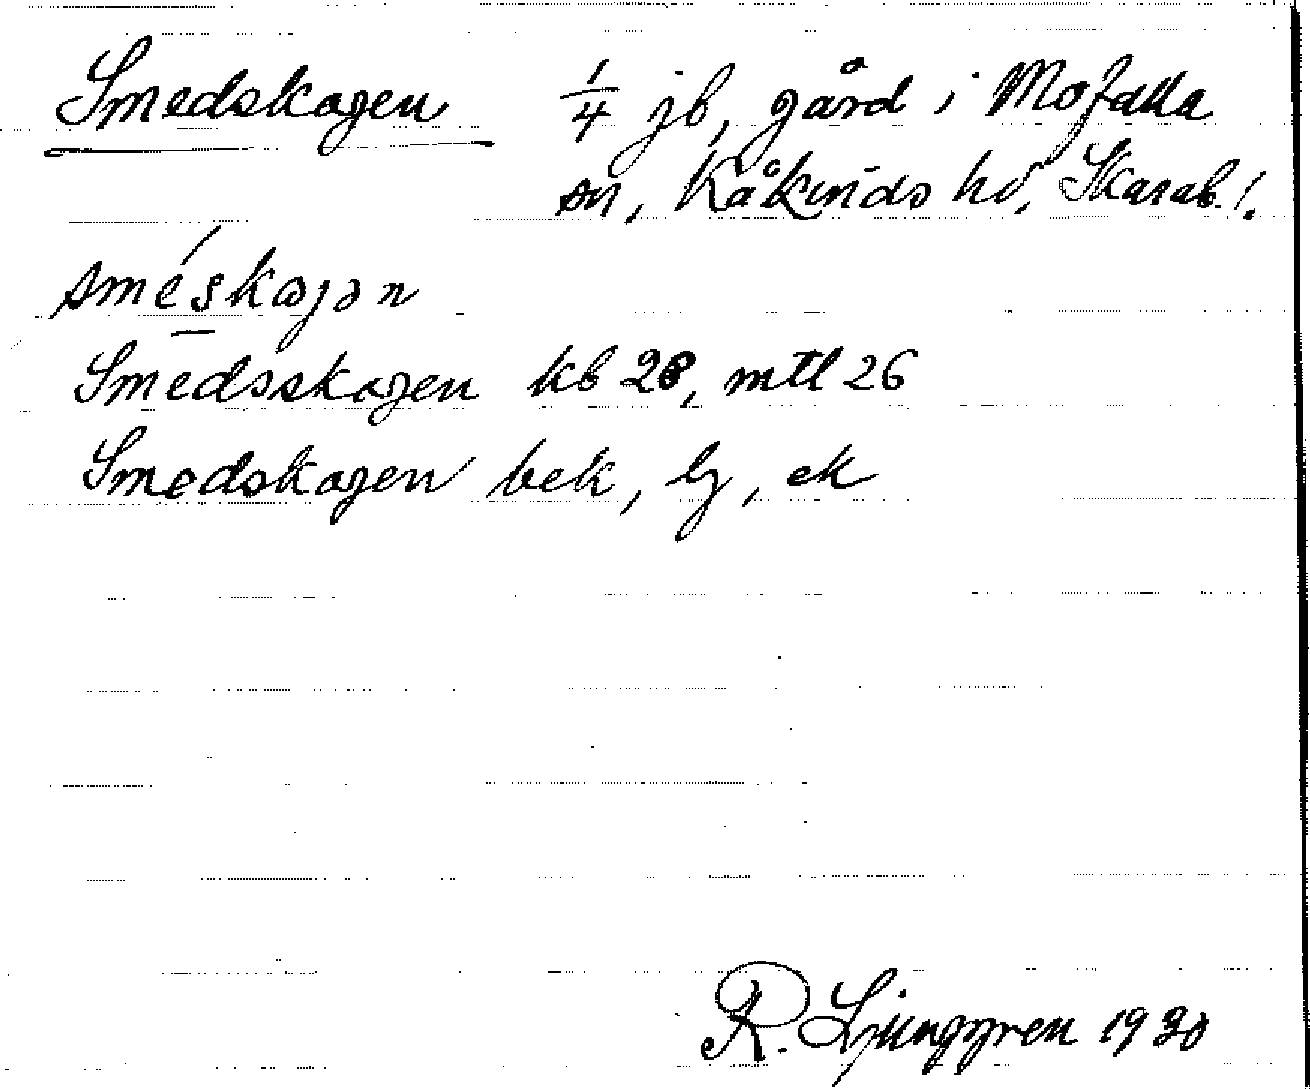 Smedskogen 1/4 jb, gård i Mofalla
sn, Kåkinds hd, Skarab. l.
sméskogən
Smedsskogen kb 28, mtl 26
Smedskogen bek, lj, ek
R. Ljunggren 1930